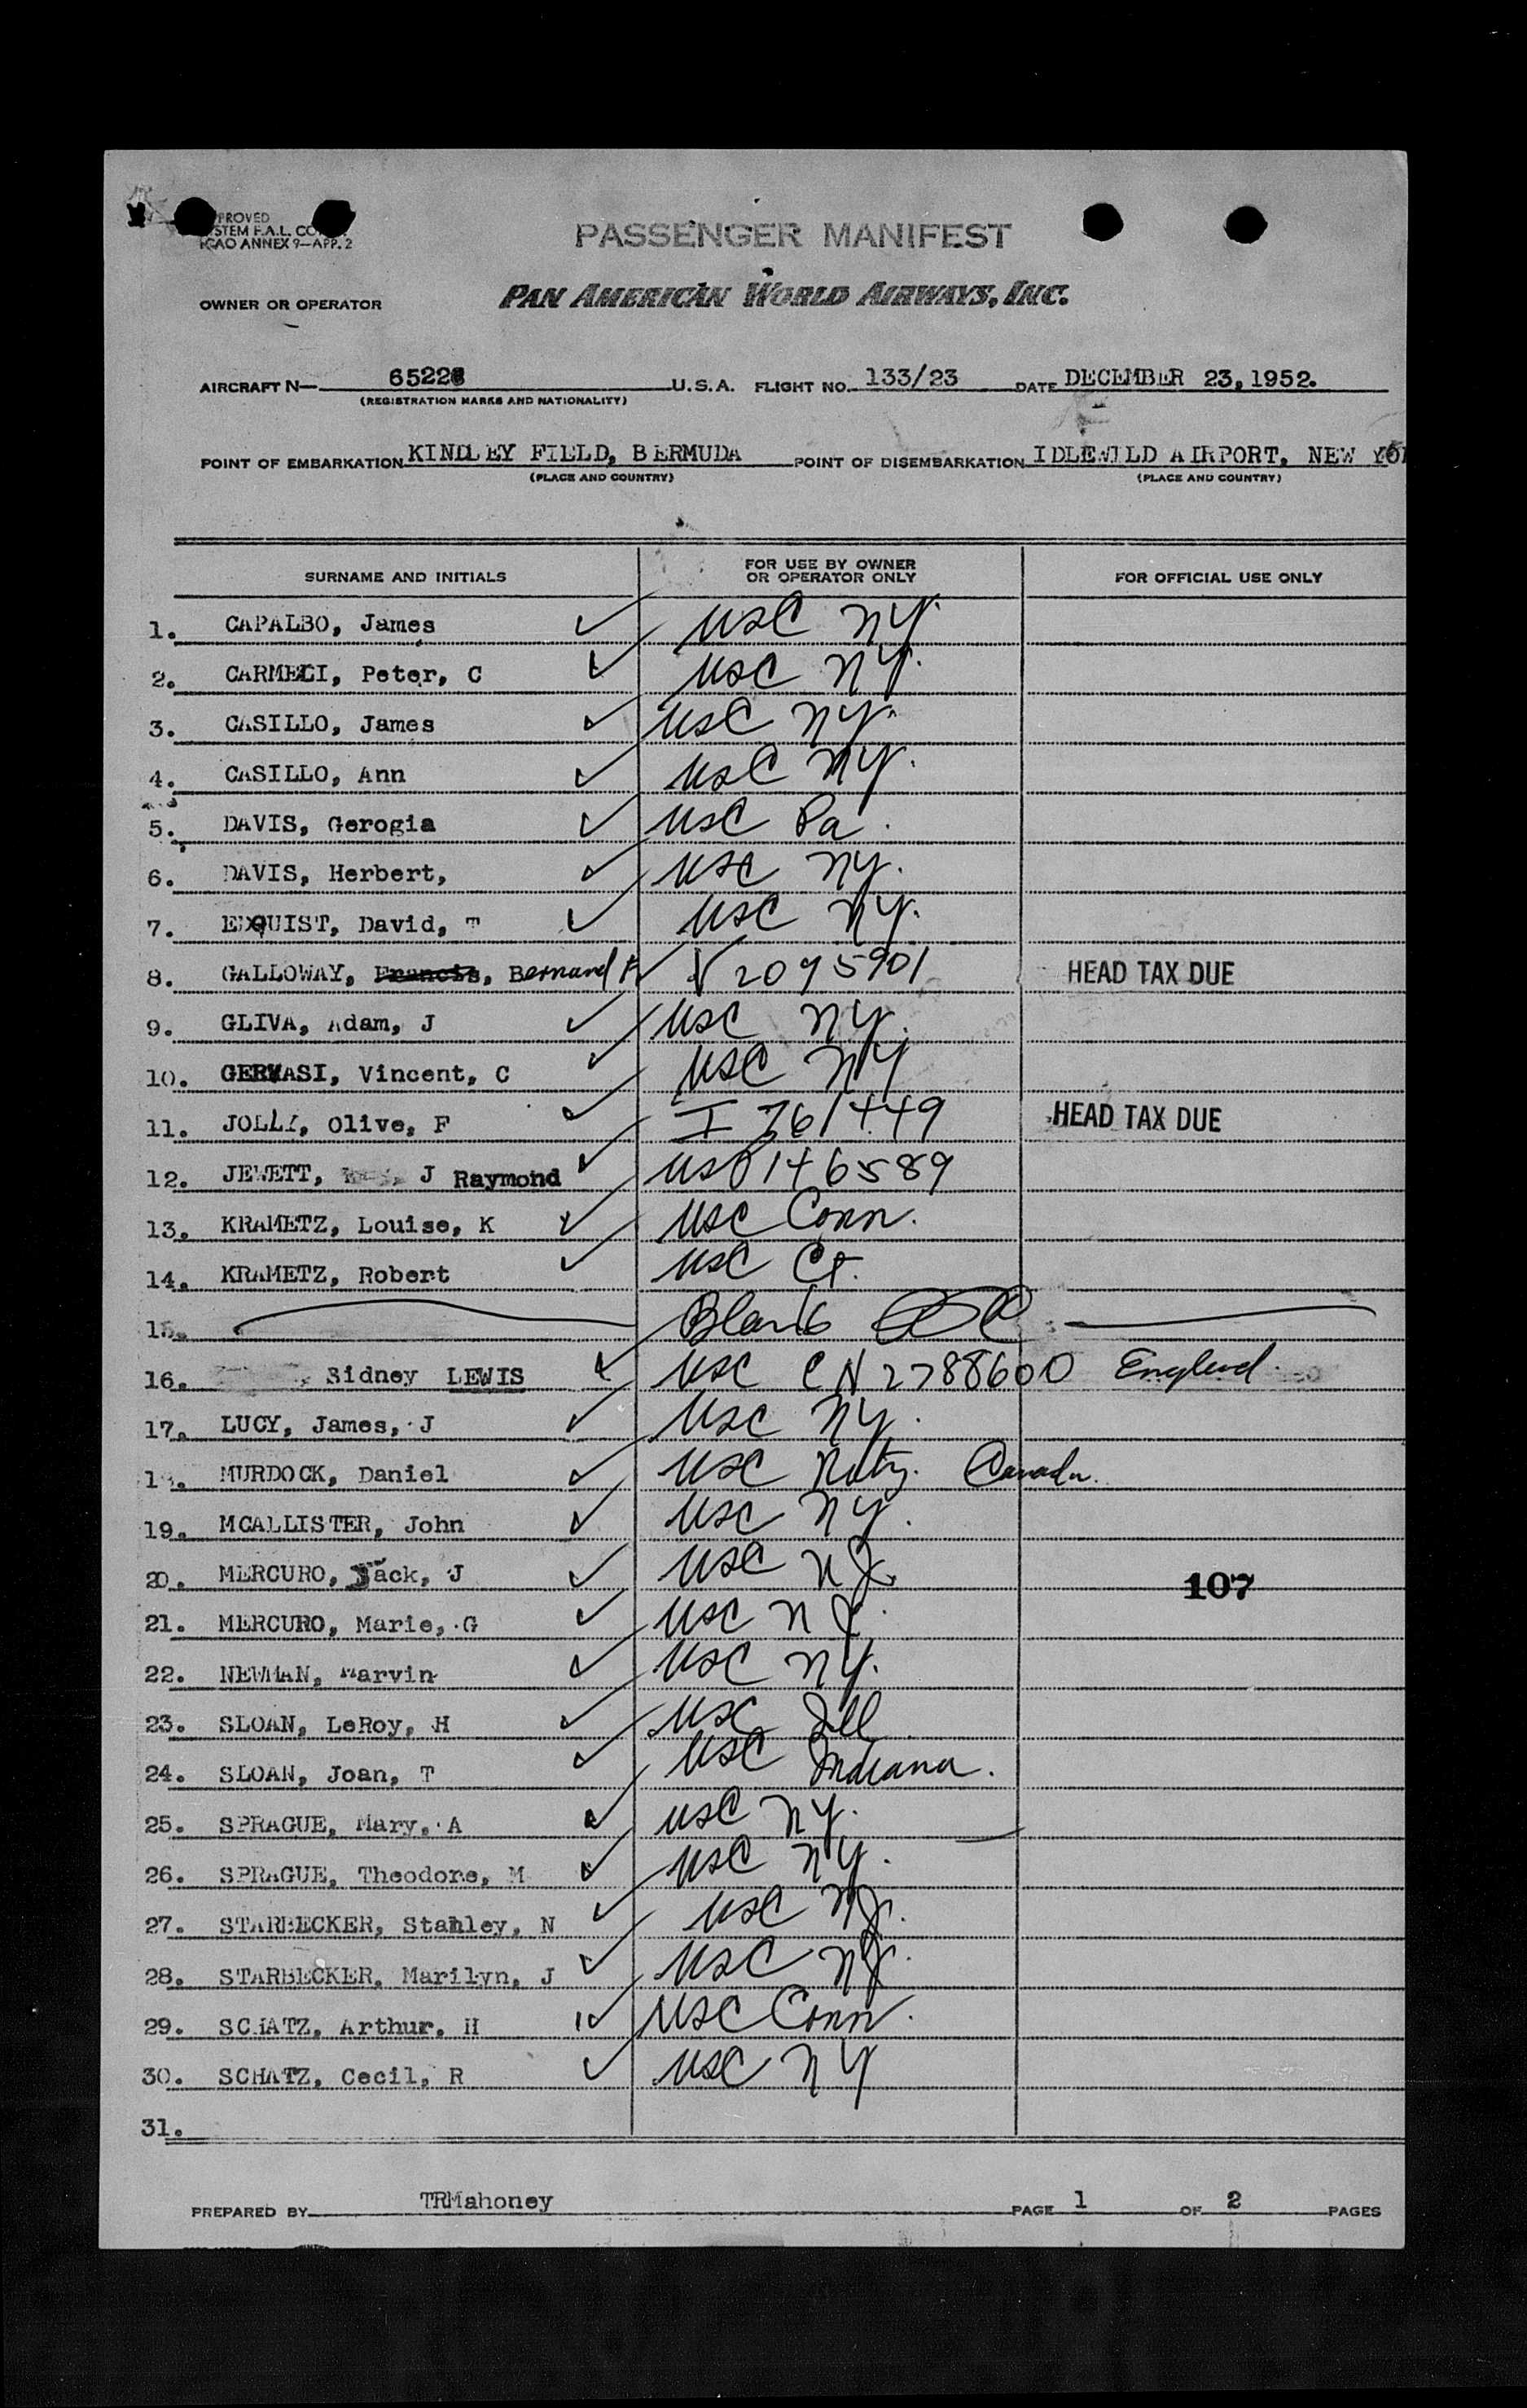 PROVED
STEM F.A.L. CO
ICAO ANNEX 9—APP. 2
PASSENGER MANIFEST
OWNER OR OPERATOR PAN AMERICAN WORLD AIRWAYS, INC.
AIRCRAFT N— 65228 U.S.A. FLIGHT NO. 133/23 DATE DECEMBER 23, 1952.
(REGISTRATION MARKS AND NATIONALITY)
POINT OF EMBARKATION KINDLEY FIELD, BERMUDA POINT OF DISEMBARKATION IDLEWILD AIRPORT, NEW YO
(PLACE AND COUNTRY) (PLACE AND COUNTRY)
SURNAME AND INITIALS FOR USE BY OWNER OR OPERATOR ONLY FOR OFFICIAL USE ONLY
1. CAPALBO, James ✓ USC NY.
2. CARMECI, Peter, C ✓ USC NY.
3. CASILLO, James ✓ USC NY.
4. CASILLO, Ann ✓ USC NY.
5. DAVIS, Gerogia ✓ USC Pa.
6. DAVIS, Herbert, ✓ USC NY.
7. EDQUIST, David, T ✓ USC NY.
8. GALLOWAY, Francis, Bernard F ✓ V 2095901 HEAD TAX DUE
9. GLIVA, Adam, J ✓ USC NY.
10. GERVASI, Vincent, C ✓ USC NY
11. JOLLY, Olive, F ✓ I 761449 HEAD TAX DUE
12. JEWETT, J Raymond ✓ USP 146589
13. KRAMETZ, Louise, K ✓ USC Conn.
14. KRAMETZ, Robert ✓ USC Ct.
15. Blank
16. Sidney LEWIS ✓ USC CN 2788600 England.
17. LUCY, James, J ✓ USC NY.
18. MURDOCK, Daniel ✓ USC Natz. Canada.
19. MCALLISTER, John ✓ USC NY.
20. MERCURO, Jack, J ✓ USC NJ.
107
21. MERCURO, Marie, G ✓ USC NJ.
22. NEWMAN, Marvin ✓ USC NY.
23. SLOAN, LeRoy, H ✓ USC Ill
24. SLOAN, Joan, T ✓ USC Indiana.
25. SPRAGUE, Mary, A ✓ USC NY.
26. SPRAGUE, Theodore, M ✓ USC NY.
27. STARBECKER, Stanley, N ✓ USC NJ.
28. STARBECKER, Marilyn, J ✓ USC NJ.
29. SCHATZ, Arthur, H ✓ USC Conn.
30. SCHATZ, Cecil, R ✓ USC NY
31.
PREPARED BY TRMahoney PAGE 1 OF 2 PAGES